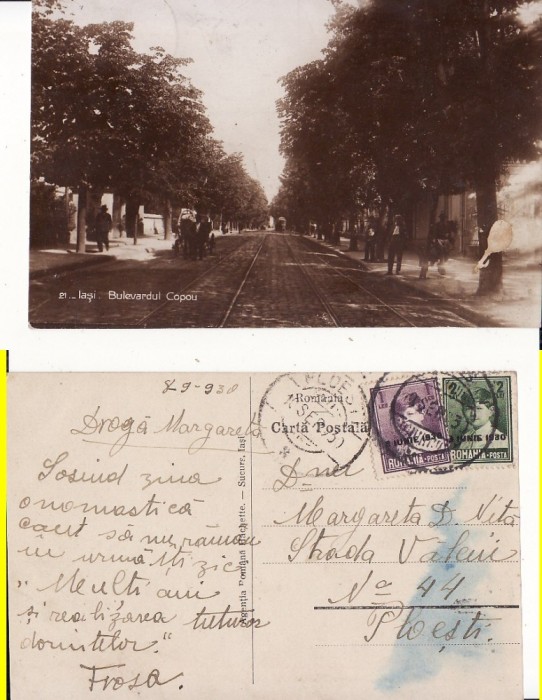 21._ Iași. Bulevardul Copou
Dragă Margareta
Sosind ziua
onomastică
caut să nu rămân
în urmă Ți zic
"Mulți ani
și realizarea tuturor
dorințelor."
Frosa.
Agenția Română Hachette. — Sucurs. Iași
România
Carta Poștală
1 LEI
8 IUNIE 1930
ROMÂNIA-POSTA
2 LEI
8 IUNIE 1930
ROMÂNIA-POSTA
D-nei
Margareta D. Niță
Strada Văleni
No 44
Ploești.